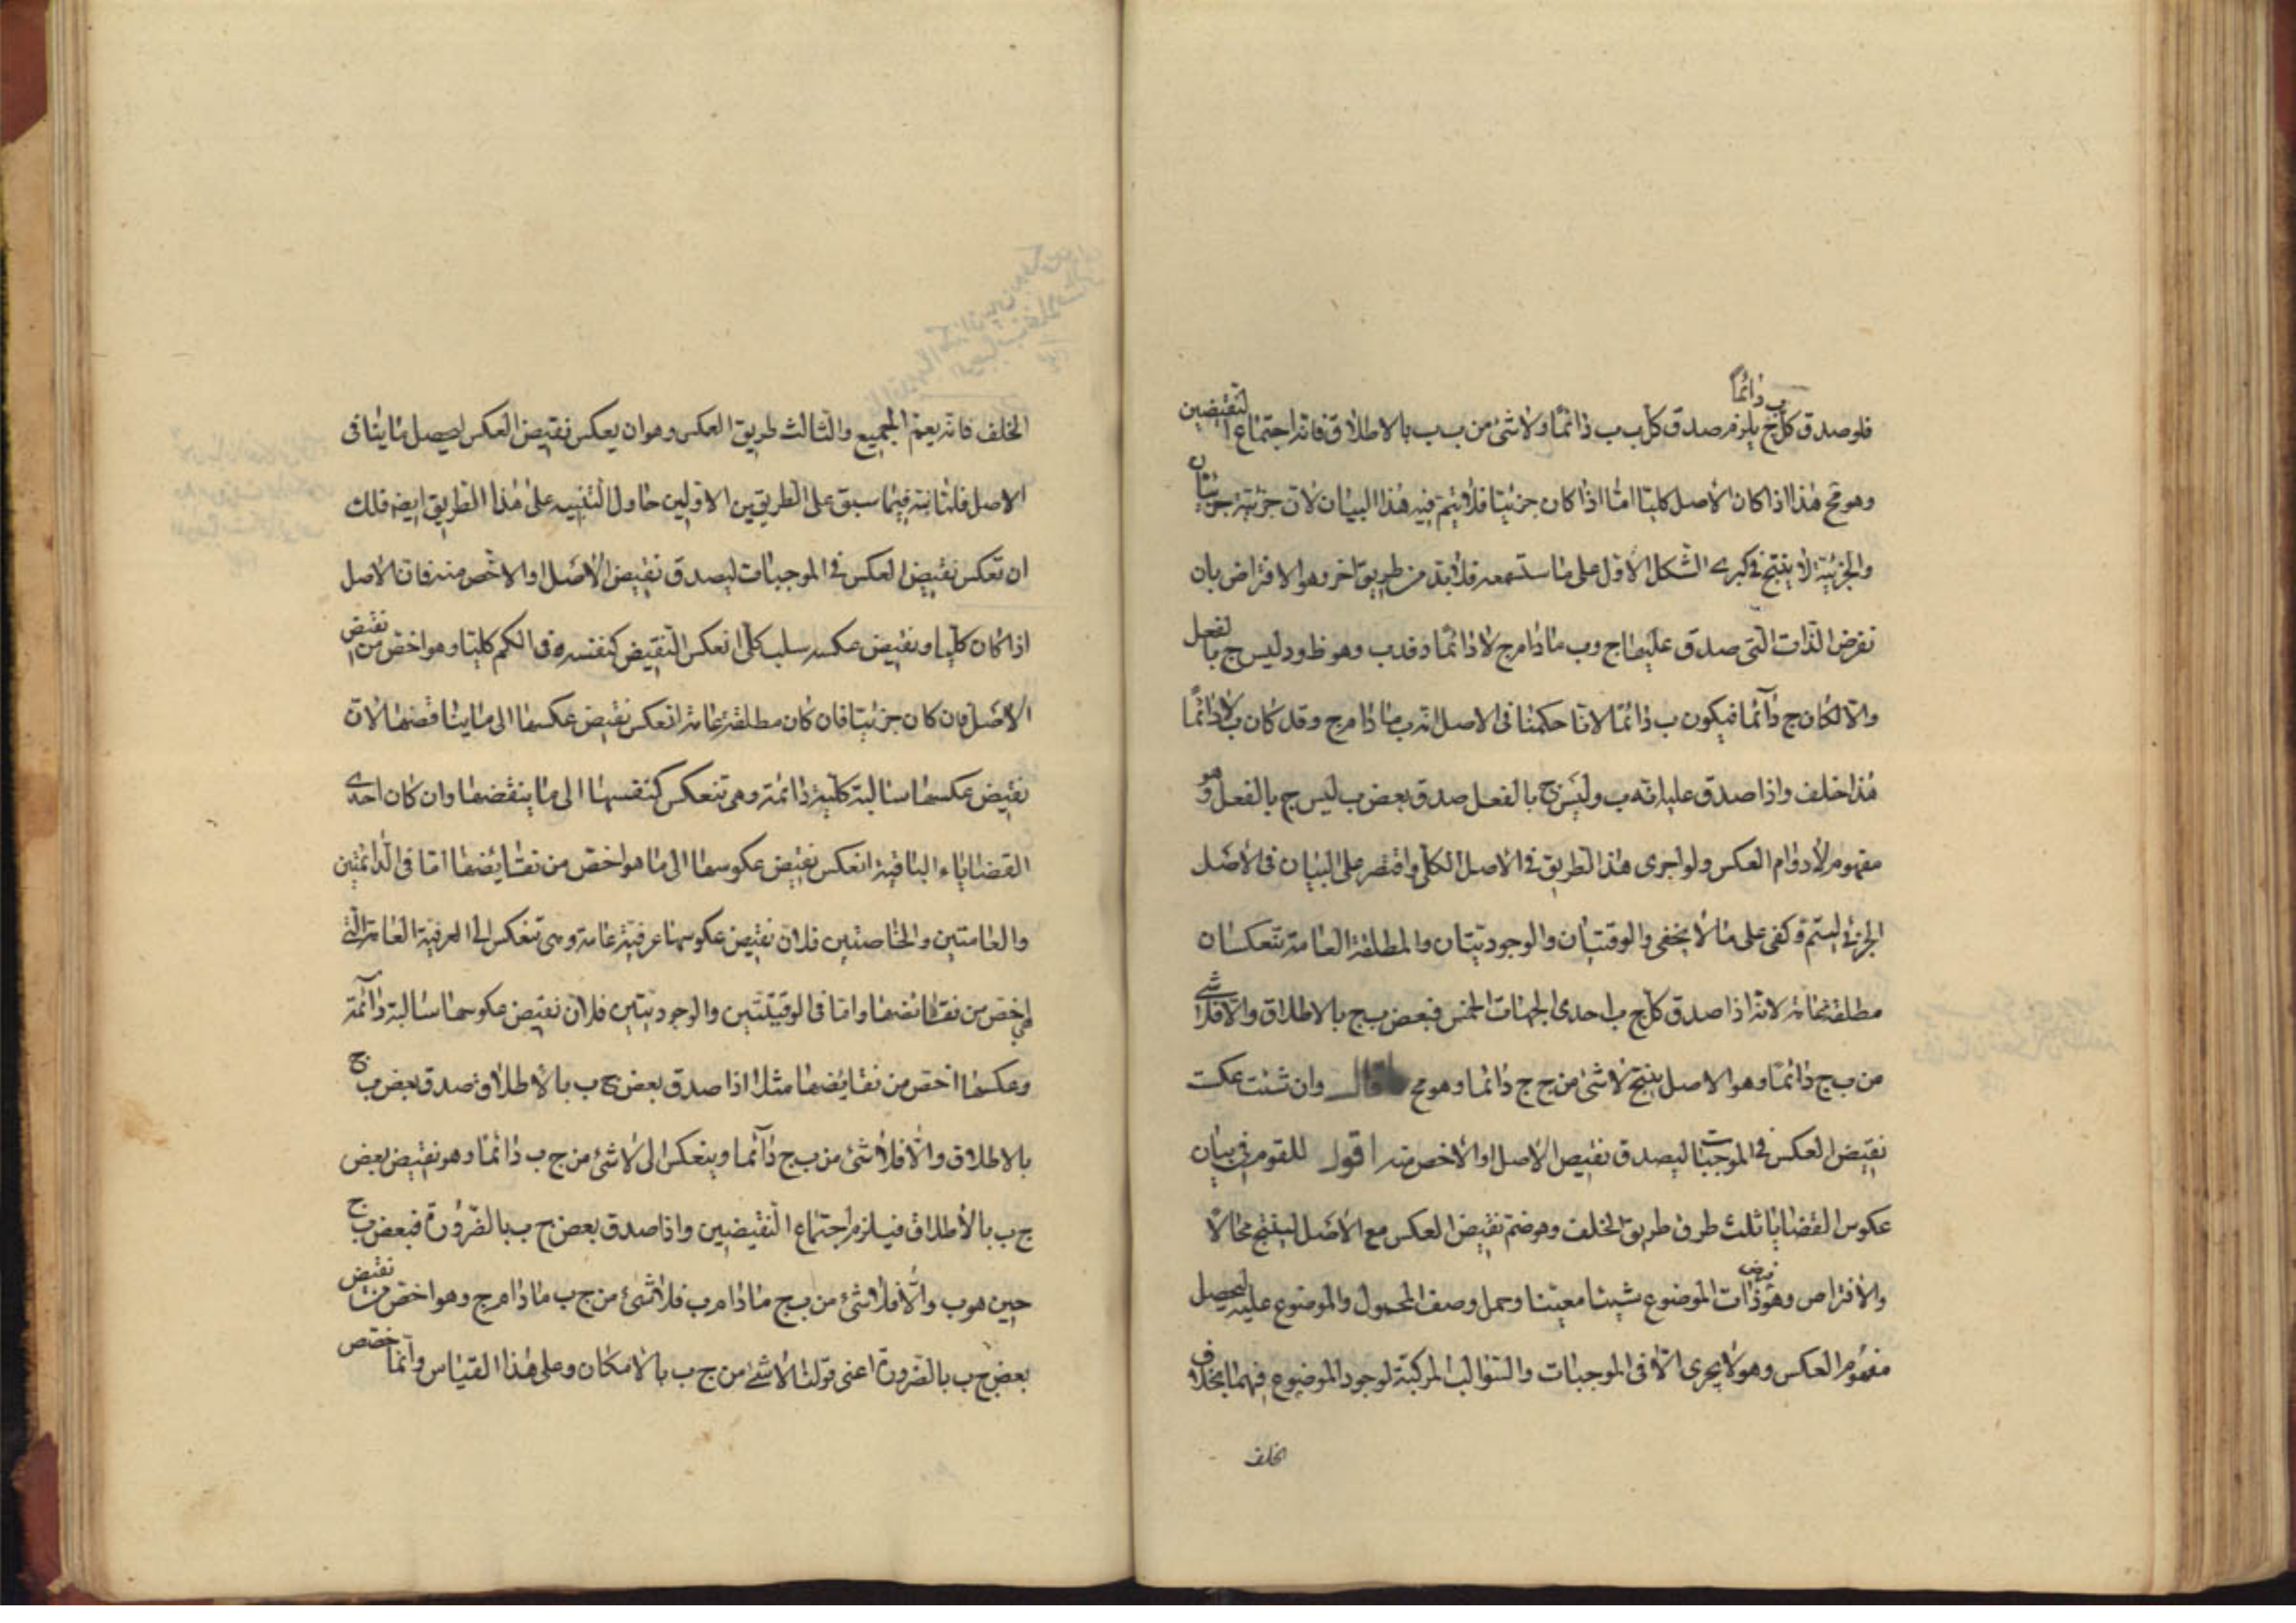 فلو صدق كل ج ب دائما يلزم صدق كل ب ب دائما ولا شئ من ب ب بالاطلاق فانه اجتماع النقيضين
وهو مح هذا اذا كان الاصل كليا اما اذا كان جزئيا فلا يتم فيه هذا البيان لان جزئيه جزئيتان
والجزئية لا ينتج فى كبرى الشكل الاول على ما ستسمعه فلا بد من طريق اخر وهو الافتراض بان
نفرض الذات التى صدق عليها ج وب مادام ج لا دائما د فدب وهو ظ ود ليس ج بالفعل
والا لكان ج دائما فيكون ب دائما لانا حكمنا فى الاصل انه ب مادام ج وقد كان ب لا دائما
هذا خلف واذا صدق عليه انه ب وليس ج بالفعل صدق بعض ب ليس ج بالفعل وهو
مفهوم لا دوام العكس ولو اجرى هذا الطريق فى الاصل الكلى واقتصر على البيان فى الاصل
الجزئى ليتم وكفى على ما لا يخفى والوقتيتان والوجوديتان والمطلقة العامة تنعكسان
مطلقة عامة لانه اذا صدق كل ج ب احدى الجهات الخمس فبعض ب ج بالاطلاق والا فلا شئ
من ب ج دائما وهو الاصل ينتج لا شئ من ج ج دائما وهو مح قال وان شئت عكست
نقيض العكس فى الموجبات ليصدق نقيض الاصل او الاخص منه اقول للقوم فى بيان
عكوس القضايا ثلث طرق طريق الخلف وهو ضم نقيض العكس مع الاصل لينتج محالا
والافتراض وهو فرض ذات الموضوع شيئا معينا وحمل وصف المحمول والموضوع عليه ليحصل
مفهوم العكس وهو لا يجرى الا فى الموجبات والسوالب المركبة لوجود الموضوع فيهما بخلاف
الخلف
الخلف فانه يعم الجميع والثالث طريق العكس وهو ان يعكس نقيض العكس ليحصل ما ينافى
الاصل فلما نبه فيما سبق على الطريقين الاولين حاول التنبيه على هذا الطريق ايضا فلك
ان تعكس نقيض العكس فى الموجبات ليصدق نقيض الاصل او الاخص منه فان الاصل
اذا كان كليا ونقيض عكسه سلب كلى انعكس النقيض كنفسه فى الكم كليا وهو اخص من نقيض
الاصل فان كان جزئيا فان كان مطلقة عامة انعكس نقيض عكسها الى ما يناقضها لان
نقيض عكسها سالبة كلية دائمة وهى تنعكس كنفسها الى ما ينقضها وان كان احدى
القضاياء الباقية انعكس نقيض عكوسها الى ما هو اخص من نقايضها اما فى الدائمتين
والعامتين والخاصتين فلان نقيض عكوسها عرفية عامة وهى تنعكس الى العرفية العامة التى
هى اخص من نقائضها واما فى الوقتيتين والوجوديتين فلان نقيض عكوسها سالبة دائمة
وعكسها اخص من نقايضها مثلا اذا صدق بعض ج ب بالاطلاق صدق بعض ب ج
بالاطلاق والا فلا شئ من ب ج دائما وينعكس الى لا شئ من ج ب دائما وهو نقيض بعض
ج ب بالاطلاق فيلزم اجتماع النقيضين واذا صدق بعض ج ب بالضرورة فبعض ب ج
حين هو ب والا فلا شئ من ب ج مادام ب فلا شئ من ج ب مادام ج وهو اخص من نقيض
بعض ج ب بالضرورة اعنى قولنا لا شئ من ج ب بالامكان وعلى هذا القياس وانما خصص